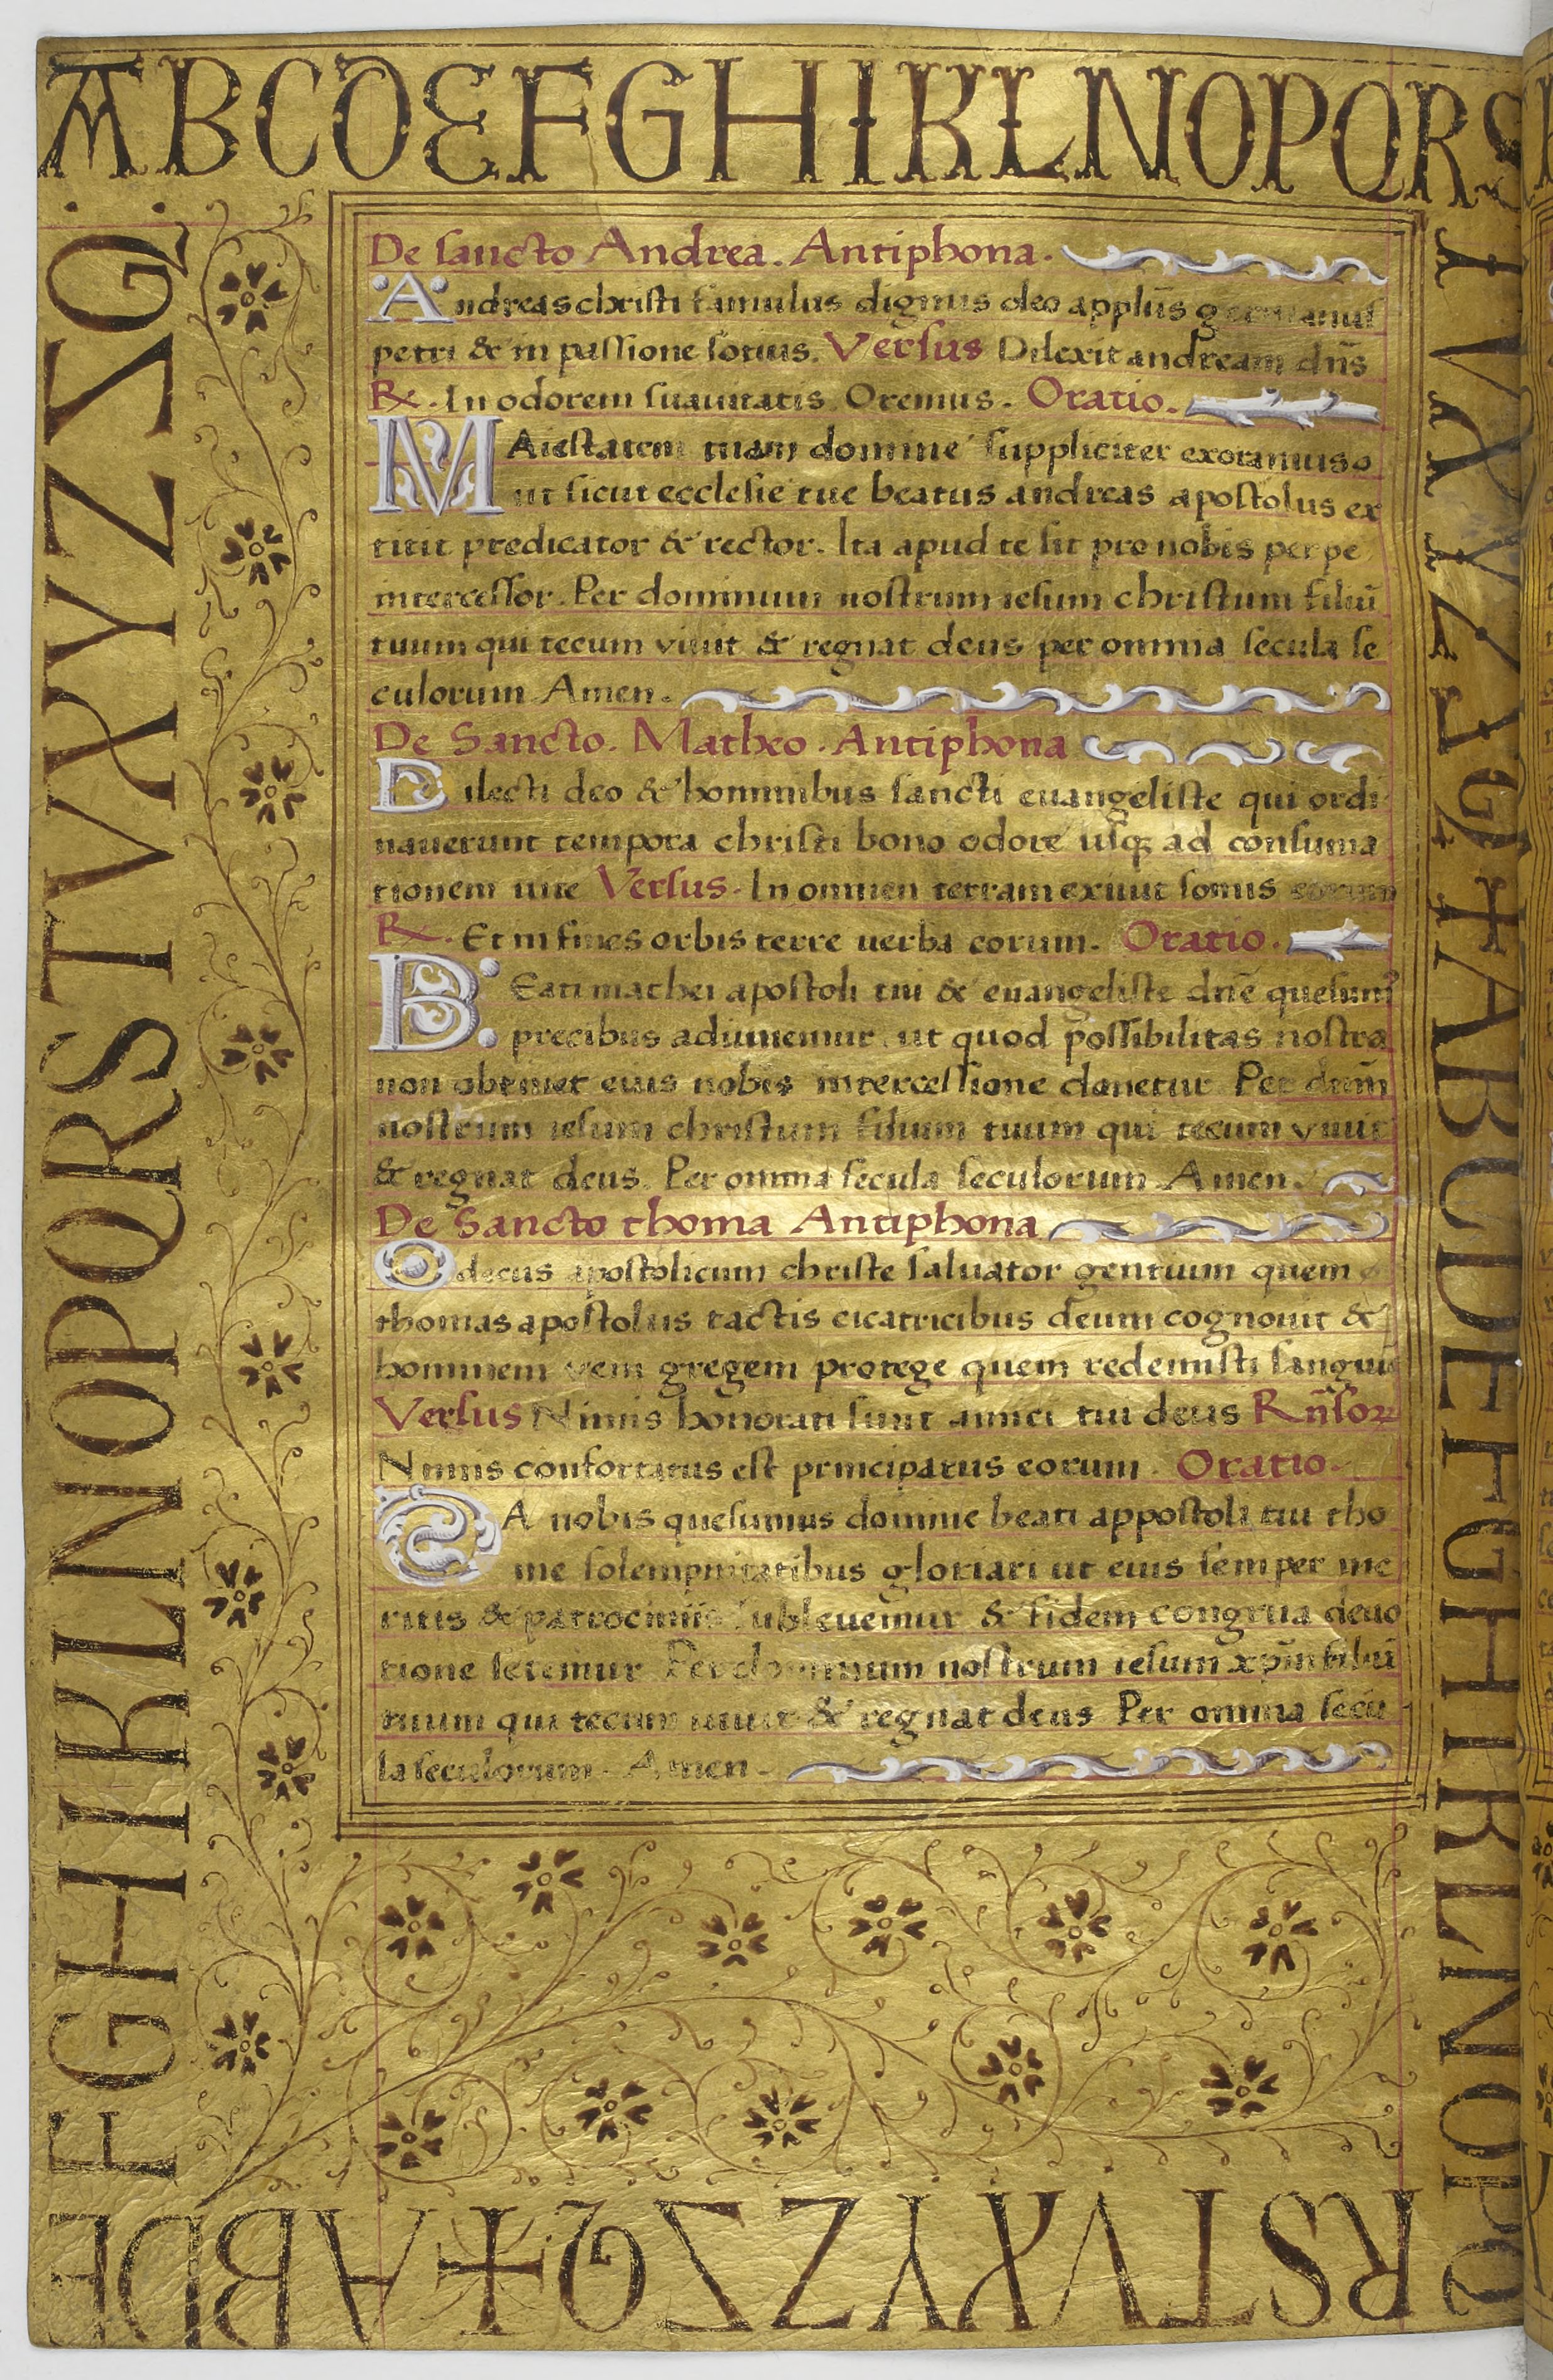 ABCDEFGHIKLNOPQRS
TVXYZ
ABCDEFGHIKLNOPQ
RSTVXYZ
ABCDE
FGHIKLNOPQRSTVXYZ
De sancto Andrea. Antiphona.
Andreas christi famulus dignus deo applūs germanus
petri & in passione socius. Versus Dilexit andream dn̄s
R. In odorem suauitatis. Oremus. Oratio.
MAiestatem tuam domine suppliciter exoramus
ut sicut ecclesie tue beatus andreas apostolus ex
titit predicator & rector. Ita apud te sit pro nobis perpe
intercessor. Per dominum nostrum iesum christum filiū
tuum qui tecum viuit & regnat deus per omnia secula se
culorum Amen.
De Sancto. Matheo. Antiphona
Dilecti deo & hominibus sancti euangeliste qui ordi
nauerunt tempora christi bono odore usq; ad consuma
tionem uite Versus. In omnen terram exiuit sonus eorum
R. Et in fines orbis terre uerba eorum. Oratio.
BEati mathei apostoli tui & euangeliste dn̄e quesum⁹
precibus adiuuemur. ut quod possibilitas nostra
non obtinet eius nobis intercessione donetur. Per dum̄
nostrum iesum christum filium tuum qui tecum viuit
& regnat deus. Per omnia secula seculorum. Amen.
De Sancto thoma Antiphona
O decus apostolicum christe saluator gentium quem
thomas apostolus tactis cicatricibus deum cognouit &
hominem gregem protege quem redemisti sangui
Versus Nimis honorati sunt amici tui deus Rn̄soꝝ
Nimis confortatus est principatus eorum. Oratio.
DA nobis quesumus domine beati appostoli tui tho
me solempnitatibus gloriari ut eius semper me
ritis & patrociniis subleuemur & fidem congrua deuo
tione setemur Per dominum nostrum iesum xp̄m filiū
tuum qui tecum uiuit & regnat deus Per omnia secu
la seculorum. Amen.